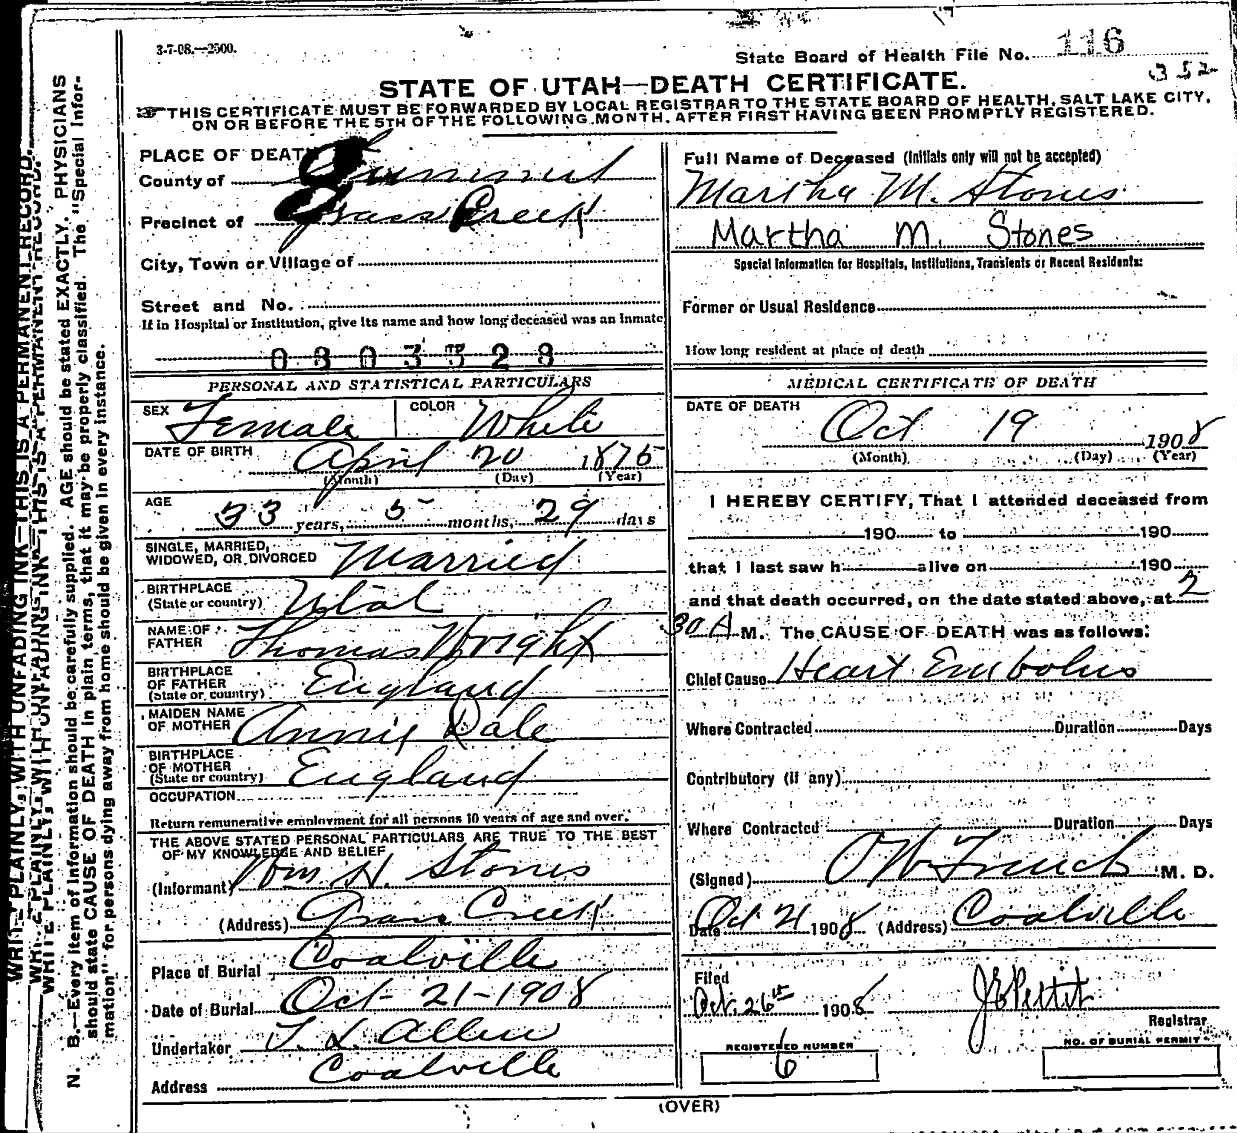 3-7-08.—2500.
State Board of Health File No. 116
352
STATE OF UTAH—DEATH CERTIFICATE.
THIS CERTIFICATE MUST BE FORWARDED BY LOCAL REGISTRAR TO THE STATE BOARD OF HEALTH, SALT LAKE CITY,
ON OR BEFORE THE 5TH OF THE FOLLOWING MONTH, AFTER FIRST HAVING BEEN PROMPTLY REGISTERED.
PLACE OF DEATH
County of Summit
Precinct of Grass Creek
City, Town or Village of
Street and No.
If in Hospital or Institution, give its name and how long deceased was an Inmate
0303328
PERSONAL AND STATISTICAL PARTICULARS
SEX Female COLOR White
DATE OF BIRTH April 20 1875
(Month) (Day) (Year)
AGE 33 years, 5 months, 29 days
SINGLE, MARRIED,
WIDOWED, OR DIVORCED Married
BIRTHPLACE
(State or country) Utah
NAME OF
FATHER Thomas Wright
BIRTHPLACE
OF FATHER
(State or country) England
MAIDEN NAME
OF MOTHER Annie Dale
BIRTHPLACE
OF MOTHER
(State or country) England
OCCUPATION
Return remunerative employment for all persons 10 years of age and over.
THE ABOVE STATED PERSONAL PARTICULARS ARE TRUE TO THE BEST
OF MY KNOWLEDGE AND BELIEF
(Informant) Wm H. Stones
(Address) Grass Creek
Place of Burial Coalville
Date of Burial Oct-21-1908
Undertaker T. L. Allen
Address Coalville
Full Name of Deceased (Initials only will not be accepted)
Martha M. Stones
Martha M. Stones
Special Information for Hospitals, Institutions, Transients or Recent Residents:
Former or Usual Residence
How long resident at place of death
MEDICAL CERTIFICATE OF DEATH
DATE OF DEATH
Oct 19 1908
(Month) (Day) (Year)
I HEREBY CERTIFY, That I attended deceased from
190 to 190
that I last saw h alive on 190
and that death occurred, on the date stated above, at 2
30 A M. The CAUSE OF DEATH was as follows:
Chief Cause Heart Embolus
Where Contracted Duration Days
Contributory (if any)
Where Contracted Duration Days
(Signed) O W French M. D.
Date Oct 21 1908 (Address) Coalville
Filed
Oct. 26th 1908 J E Pettit
Registrar
REGISTERED NUMBER
6
NO. OF BURIAL PERMIT
(OVER)
WRITE PLAINLY, WITH UNFADING INK—THIS IS A PERMANENT RECORD.
N. B.—Every item of information should be carefully supplied. AGE should be stated EXACTLY. PHYSICIANS
should state CAUSE OF DEATH in plain terms, that it may be properly classified. The "Special Infor-
mation" for persons dying away from home should be given in every instance.